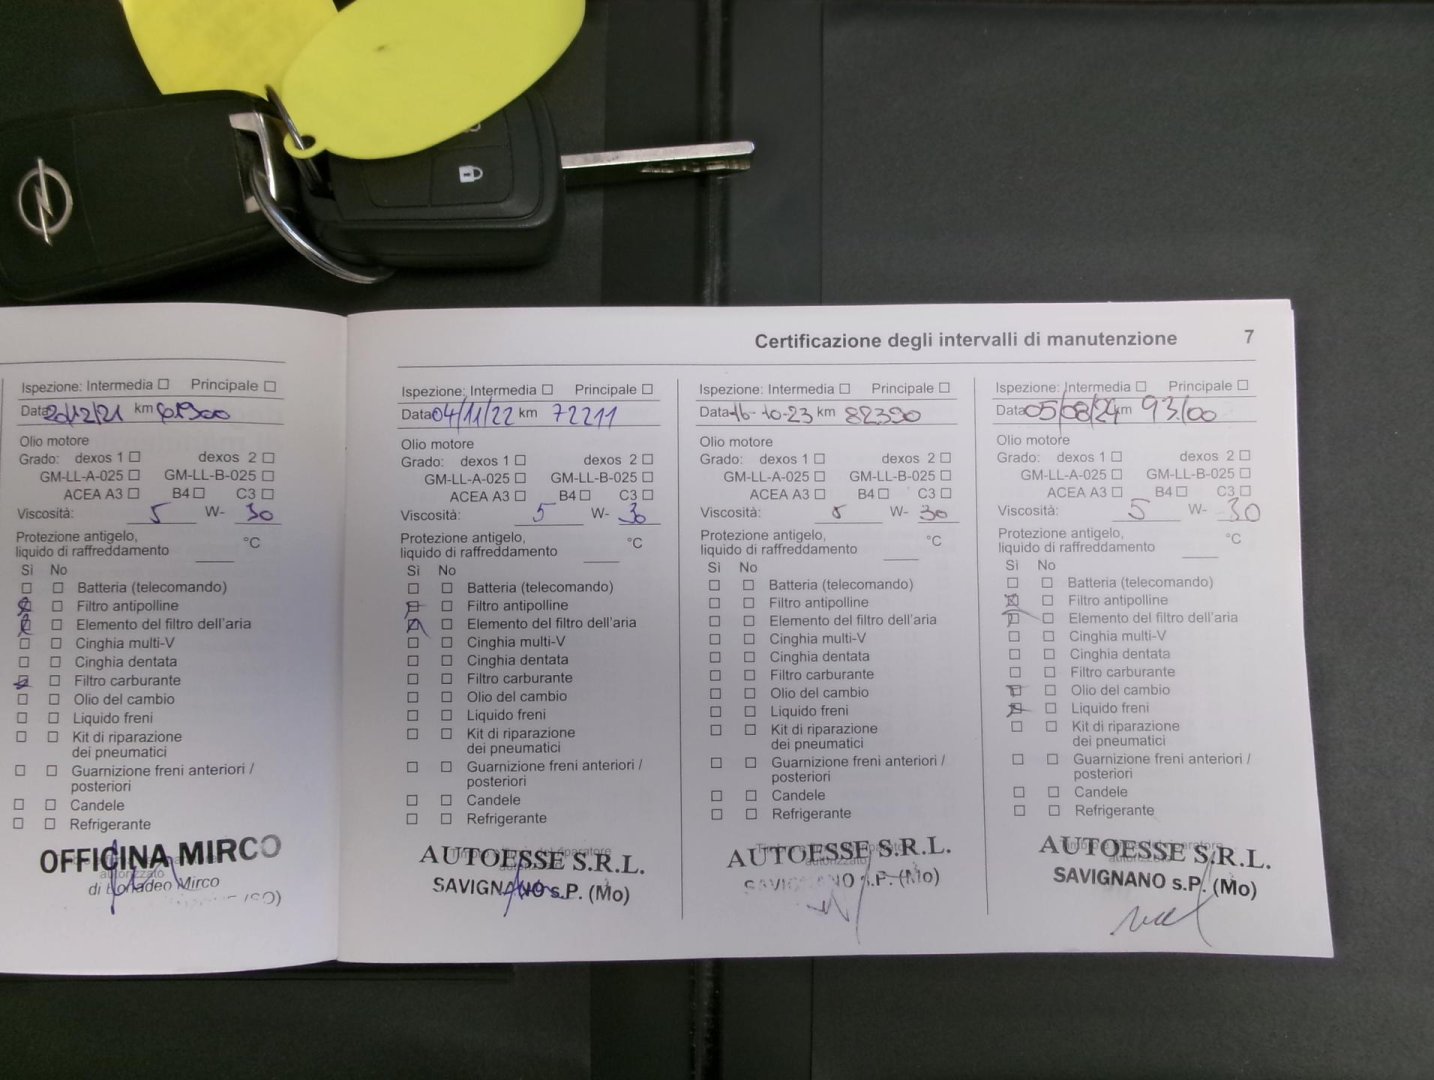 Certificazione degli intervalli di manutenzione 7
Ispezione: Intermedia ☐ Principale ☐
Data 20/12/21 km 61900
Olio motore
Grado: dexos 1 ☐ dexos 2 ☐
GM-LL-A-025 ☐ GM-LL-B-025 ☐
ACEA A3 ☐ B4 ☐ C3 ☐
Viscosità: 5 W- 30
Protezione antigelo,
liquido di raffreddamento ____ °C
Sì No
☐ ☐ Batteria (telecomando)
☒ ☐ Filtro antipolline
☒ ☐ Elemento del filtro dell'aria
☐ ☐ Cinghia multi-V
☐ ☐ Cinghia dentata
☒ ☐ Filtro carburante
☐ ☐ Olio del cambio
☐ ☐ Liquido freni
☐ ☐ Kit di riparazione
dei pneumatici
☐ ☐ Guarnizione freni anteriori /
posteriori
☐ ☐ Candele
☐ ☐ Refrigerante
OFFICINA MIRCO
di Bonadeo Mirco
(SO)
Ispezione: Intermedia ☐ Principale ☐
Data 04/11/22 km 72211
Olio motore
Grado: dexos 1 ☐ dexos 2 ☐
GM-LL-A-025 ☐ GM-LL-B-025 ☐
ACEA A3 ☐ B4 ☐ C3 ☐
Viscosità: 5 W- 30
Protezione antigelo,
liquido di raffreddamento ____ °C
Sì No
☐ ☐ Batteria (telecomando)
☒ ☐ Filtro antipolline
☒ ☐ Elemento del filtro dell'aria
☐ ☐ Cinghia multi-V
☐ ☐ Cinghia dentata
☐ ☐ Filtro carburante
☐ ☐ Olio del cambio
☐ ☐ Liquido freni
☐ ☐ Kit di riparazione
dei pneumatici
☐ ☐ Guarnizione freni anteriori /
posteriori
☐ ☐ Candele
☐ ☐ Refrigerante
AUTOESSE S.R.L.
SAVIGNANO s.P. (Mo)
Ispezione: Intermedia ☐ Principale ☐
Data 16-10-23 km 82390
Olio motore
Grado: dexos 1 ☐ dexos 2 ☐
GM-LL-A-025 ☐ GM-LL-B-025 ☐
ACEA A3 ☐ B4 ☐ C3 ☐
Viscosità: 5 W- 30
Protezione antigelo,
liquido di raffreddamento ____ °C
Sì No
☐ ☐ Batteria (telecomando)
☐ ☐ Filtro antipolline
☐ ☐ Elemento del filtro dell'aria
☐ ☐ Cinghia multi-V
☐ ☐ Cinghia dentata
☐ ☐ Filtro carburante
☐ ☐ Olio del cambio
☐ ☐ Liquido freni
☐ ☐ Kit di riparazione
dei pneumatici
☐ ☐ Guarnizione freni anteriori /
posteriori
☐ ☐ Candele
☐ ☐ Refrigerante
AUTOESSE S.R.L.
SAVIGNANO s.P. (Mo)
Ispezione: Intermedia ☐ Principale ☐
Data 05/08/24 km 93100
Olio motore
Grado: dexos 1 ☐ dexos 2 ☐
GM-LL-A-025 ☐ GM-LL-B-025 ☐
ACEA A3 ☐ B4 ☐ C3 ☐
Viscosità: 5 W- 30
Protezione antigelo,
liquido di raffreddamento ____ °C
Sì No
☐ ☐ Batteria (telecomando)
☒ ☐ Filtro antipolline
☒ ☐ Elemento del filtro dell'aria
☐ ☐ Cinghia multi-V
☐ ☐ Cinghia dentata
☐ ☐ Filtro carburante
☒ ☐ Olio del cambio
☒ ☐ Liquido freni
☐ ☐ Kit di riparazione
dei pneumatici
☐ ☐ Guarnizione freni anteriori /
posteriori
☐ ☐ Candele
☐ ☐ Refrigerante
AUTOESSE S.R.L.
SAVIGNANO s.P. (Mo)